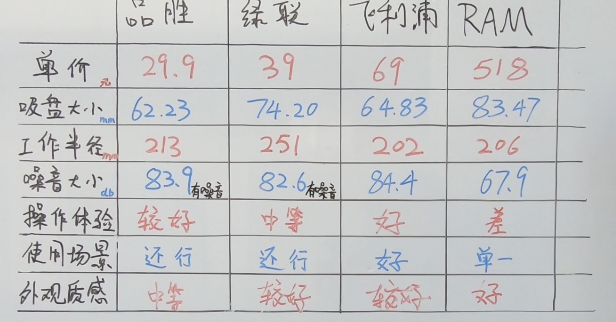 品胜 绿联 飞利浦 RAM
单价元 29.9 39 69 518
吸盘大小mm 62.23 74.20 64.83 83.47
工作半径mm 213 251 202 206
噪音大小db 83.9有噪音 82.6有噪音 84.4 67.9
操作体验 较好 中等 好 差
使用场景 还行 还行 好 单一
外观质感 中等 较好 较好 好